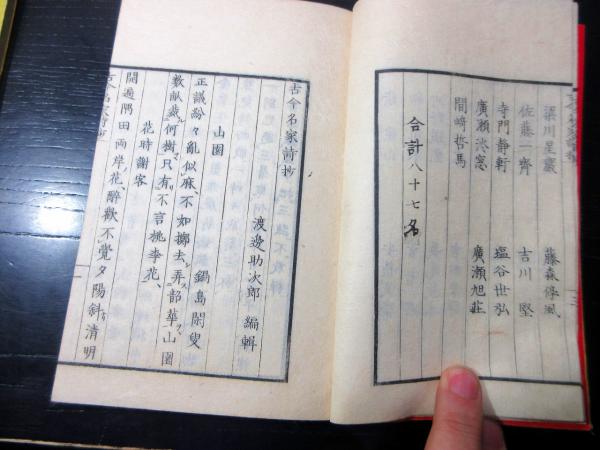 梁川星巖 藤森淳風
佐藤一齊 吉川堅
寺門靜軒 塩谷世弘
廣瀨淡窓 廣瀨旭莊
間﨑哲馬
合計八十七名
古今名家詩抄
渡邊助次郎 編輯
山園 鍋島閑叟
正議紛々亂似麻不如擲去弄韶華山園
數畝栽何樹只有不言桃李花
花時謝客
開遍隅田兩岸花醉歡不覺夕陽斜清明